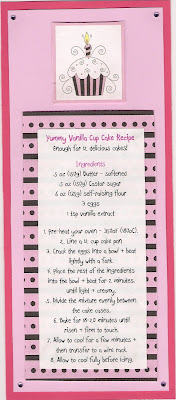 Yummy Vanilla Cup Cake Recipe
Enough for 12 delicious cakes!
Ingredients
5 oz (150g) Butter - softened
5 oz (150g) Castor sugar
6 oz (175g) self-raising flour
3 eggs
1 tsp vanilla extract
1. Pre-heat your oven - 350af (180ac).
2. Line a 12 cup cake pan
3. Crack the eggs into a bowl + beat
lightly with a fork.
4. Place the rest of the ingredients
into the bowl + beat for 2 minutes,
until light + creamy.
5. Divide the mixture evenly between
the cake cases.
6. Bake for 18-20 minutes until
risen + firm to touch.
7. Allow to cool for a few minutes +
then transfer to a wire rack.
8. Allow to cool fully before icing.